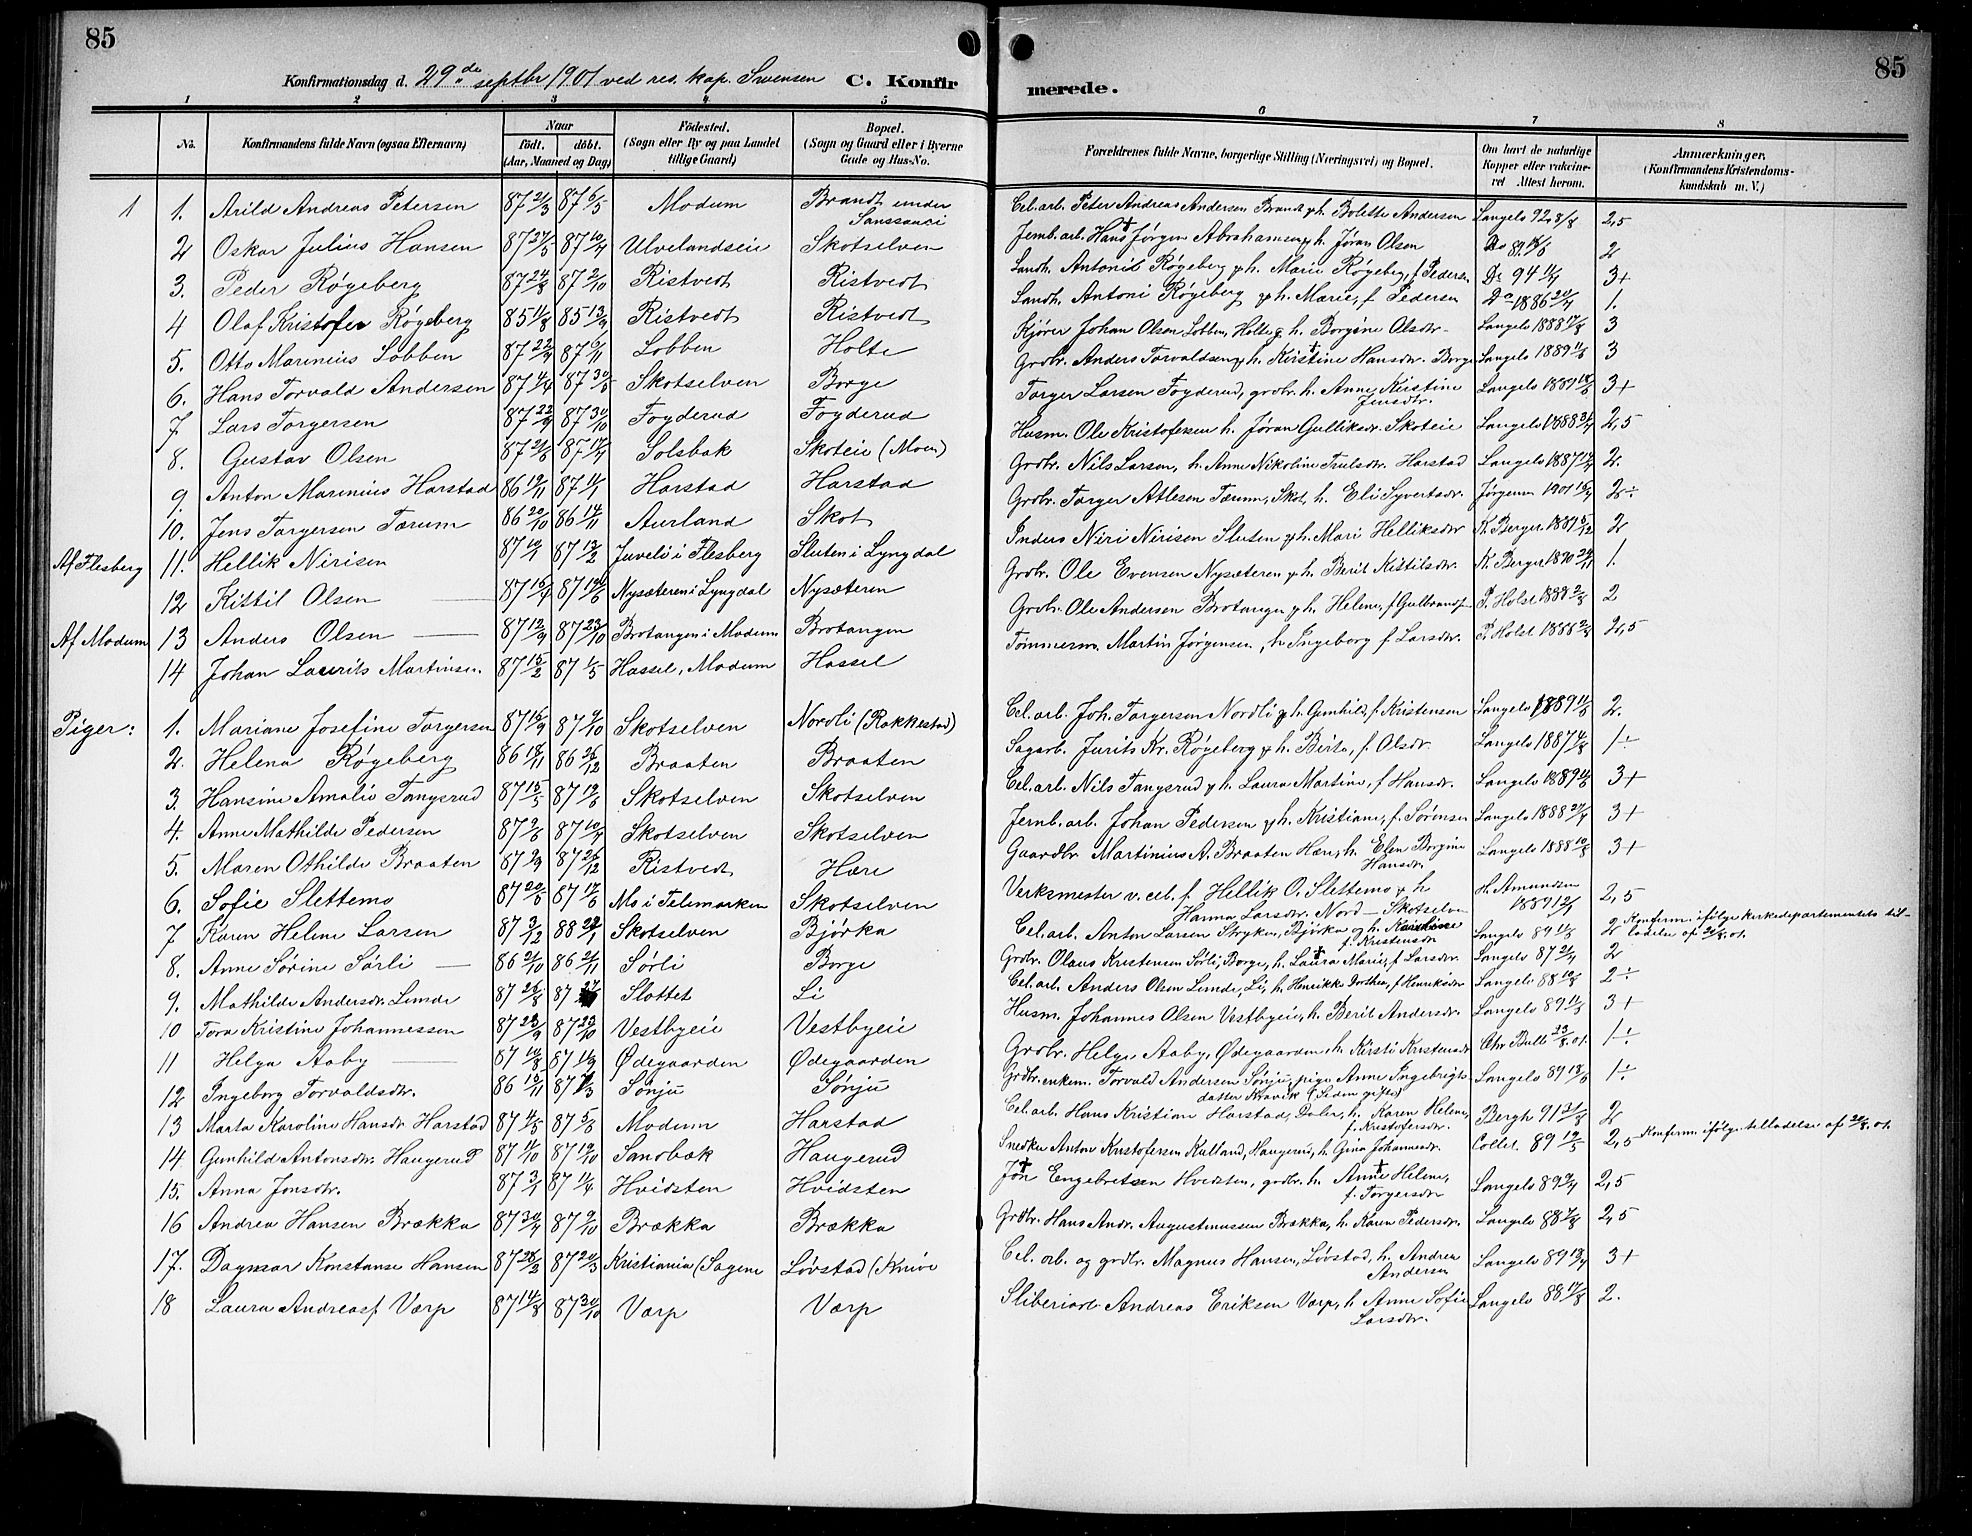 85
85
Konfirmationsdag d. 29de septbr 1901 ved res. kap. Svensen C. Konfirmerede.
1 2 3 4 5 6 7 8
No. Konfirmandens fulde Navn (ogsaa Efternavn) Naar født. døbt. (Aar, Maaned og Dag) Fødested. (Sogn eller By og paa Landet tillige Gaard) Bopæl. (Sogn og Gaard eller i Byerne Gade og Hus-No. Forældrenes fulde Navne, borgerlige Stilling (Næringsvei) og Bopæl. Om havt de naturlige Kopper eller vakcineret Attest herom. Anmærkninger. (Konfirmandens Kristendomskundskab m. V.)
1 1. Arild Andreas Petersen 87 21/3 87 6/5 Modum Brandt under Sanssouci Cel. arb. Peter Andreas Andersen Brandt og h. Bolette Andersen Langelo 92 8/8 2,5
2 Oskar Julius Hansen 87 27/5 87 10/7 Ulvelandseie Skotselven Jernb. arb. Hans Jørgen Abrahamsen og h. Jøran Olsen Do 2
3. Peder Røgeberg 87 24/8 87 2/10 Ristvedt Ristvedt Landh. Antoni Røgeberg og h. Marie Røgeberg, f. Pedersen Do 94 3+
4 Olaf Kristofer Røgeberg 85 11/8 85 13/9 Ristvedt Ristvedt Landh. Antoni Røgeberg og h. Marie, f. Pedersen Do 1886 1.
5. Otto Marinius Lobben 87 22/9 87 6/11 Lobben Holte Kjører Johan Olsen Lobben, Holte og h. Borgine Olsdtr. Langelo 1888 17/8 3
6. Hans Torvald Andersen 87 4/4 87 30/5 Skotselven Borge Grdbr. Anders Torvaldsen og h. Kristine Hansdtr. Borge Langelo 1889 3
7 Lars Torgersen 87 22/9 87 30/10 Foyderud Foyderud Torger Larsen Foyderud, grdbr. h. Anne Kristine Jensdtr. Langelo 1889 3+
8. Gustav Olsen 87 21/6 87 17/7 Solsbak Skoteie (Moen) Husm. Ole Kristofersen h. Jøran Gulliksdr. Skoteie Langelo 1888 2,5
9 Anton Marinius Harstad 86 19/11 87 1/1 Harstad Harstad Grdbr. Nils Larsen, h. Anne Nikoline Trulsdtr. Harstad Langelo 1887 2.
10. Jens Torgersen Tærum 86 20/10 86 14/11 Aurland Skot Grdbr. Torger Atlesen Tærum, Skot, h. Eli Syvertsdr. Jørgensen 1901 2÷
Af Flesberg 11. Hellik Nirisen 87 10/1 87 13/2 Juveli i Flesberg Sluten i Lyngdal Inders Niri Nirisen Sluten og h. Mari Helliksdtr K. Berger 1889 2
12 Kittil Olsen 87 15/4 87 Nysæteren i Lyngdal Nysæteren Grdbr. Ole Evensen Nysæteren og h. Berit Kittilsdr. K. Berger 1890 24/11 1.
Af Modum 13 Anders Olsen 87 12/9 87 23/10 Brotangen i Modum Brotangen Grdbr. Ole Andersen Brotangen og h. Helene, f. Gulbrandsen P. Holst 1889 2/8 2
14 Johan Laurits Martinsen. 87 15/2 87 1/5 Hassel, Modum Hassel Tømmerm. Martin Jørgensen, h. Ingeborg f. Larsdtr. P. Holst 1888 2,5
Piger: 1. Mariane Josefine Torgersen 87 16/9 87 9/10 Skotselven Nordli (Rakkestad) Cel. arb. Joh. Torgersen Nordli og h. Gunhild, f. Kristensen Langelo 1889 2.
2. Helena Røgeberg 86 18/11 86 26/12 Braaten Braaten Sagarb. Jurits Kr. Røgeberg og h. Birte, f. Olsdr. Langelo 1887 4/8 1÷
3. Hansine Amalie Tangerud 87 15/5 87 19/6 Skotselven Skotselven Cel. arb. Nils Tangerud og h. Laura Martine, f. Hansdr. Langelo 1889 3+
4. Anne Mathilde Pedersen 87 9/6 87 10/7 Skotselven Skotselven Jernb. arb. Johan Pedersen og h. Kristiane, f. Sørensen Langelo 1888 3+
5. Maren Othilde Braaten 87 9/9 87 26/12 Ristvedt Hære Gaardbr. Martinius A. Braaten Hære, h. Elen Borgine Hansdr. Langelo 1888 3+
6. Sofie Slettemo 87 20/5 87 17/6 Mo i Telemarken Skotselven Verksmester v. cel. f. Hellik O. Slettemo og h Hanna Larsdtr. Nord - Skotselven H. Amundsen 1889 2,5
7 Karen Helene Larsen 87 3/12 88 Skotselven Bjørka Cel. arb. Anton Larsen Stryken, Bjørka og h. Karoline f. Kristensdr Langelo 89 2 Konferm. ifølge kirkedepartementets tilladelse af 26/8. 01.
8. Anne Sørine Sørli 86 21/10 86 21/11 Sørli Borge Grdbr. Olaus Kristensen Sørli, Borge, h. Laura Marie, f. Larsdr. Langelo 87 2
9. Mathilde Andersdr. Limde 87 26/8 87 Slottet Li Cel. arb. Anders Olsen Limde, Li, h. Henrikke Dorthea, f. Henriksdr Langelo 88 2÷
10 Tora Kristine Johannessen 87 87 23/10 Vestbyeie Vestbyeie Husm. Johannes Olsen Vestbyeie, h. Berit Andersdr. Langelo 89 3+
11 Helga Aaby 87 10/8 87 11/9 Ødegaarden Ødegaarden Grdbr. Helge Aaby, Ødegaarden, h. Kirsti Kristensdr Chr Bulli 23/8. 01. 1÷
12 Ingeborg Torvaldsdtr. 86 15/11 87 Sønju Sønju Grdbr. enkem. Torvald Andersen Sønju, pige Anne Ingebrigtsdatter Kravik (siden gifte) Langelo 89 1÷
13 Marta Karoline Hansdr Harstad 87 4/5 87 Modum Harstad Cel. arb. Hans Kristian Harstad, Daler, h. Karen Helene, f. Kristofersdr. Bergh 91 2
14 Gunhild Antonsdr. Haugerud 87 11/10 87 Sandbæk Haugerud Snedker Anton Kristofersen Kulland, Haugerud, h. Gina Johannsdr. Collet. 89 2,5 Konferm. ifølge tilladelse af 26/8. 01.
15. Anna Jonsdtr. 87 3/1 87 11/4 Hvidsten Hvidsten Jon Engebretsen Hvidsten, grdbr. h. Anne Helene, f. Torgersdtr Langelo 89 2,5
16 Andrea Hansen Brækka 87 30/7 87 9/10 Brækka Brækka Grdbr. Hans Andr. Augustinussen Brækka, h. Karen Pedersdr. Langelo 88 2,5
17. Dagmar Konstanse Hansen 87 28/2 87 20/3 Kristiania (Sagene Løvstad (Knive Cel. arb. og grdbr. Magnus Hansen, Løvstad, h. Andrea Andersen Langelo 89 3+
18 Laura Andreasf. Værp 87 14/8 87 30/10 Værp Værp Sliberiarb. Andreas Eriksen Værp, h Anne Sofie Larsdtr. Langelo 88 17/8 2.